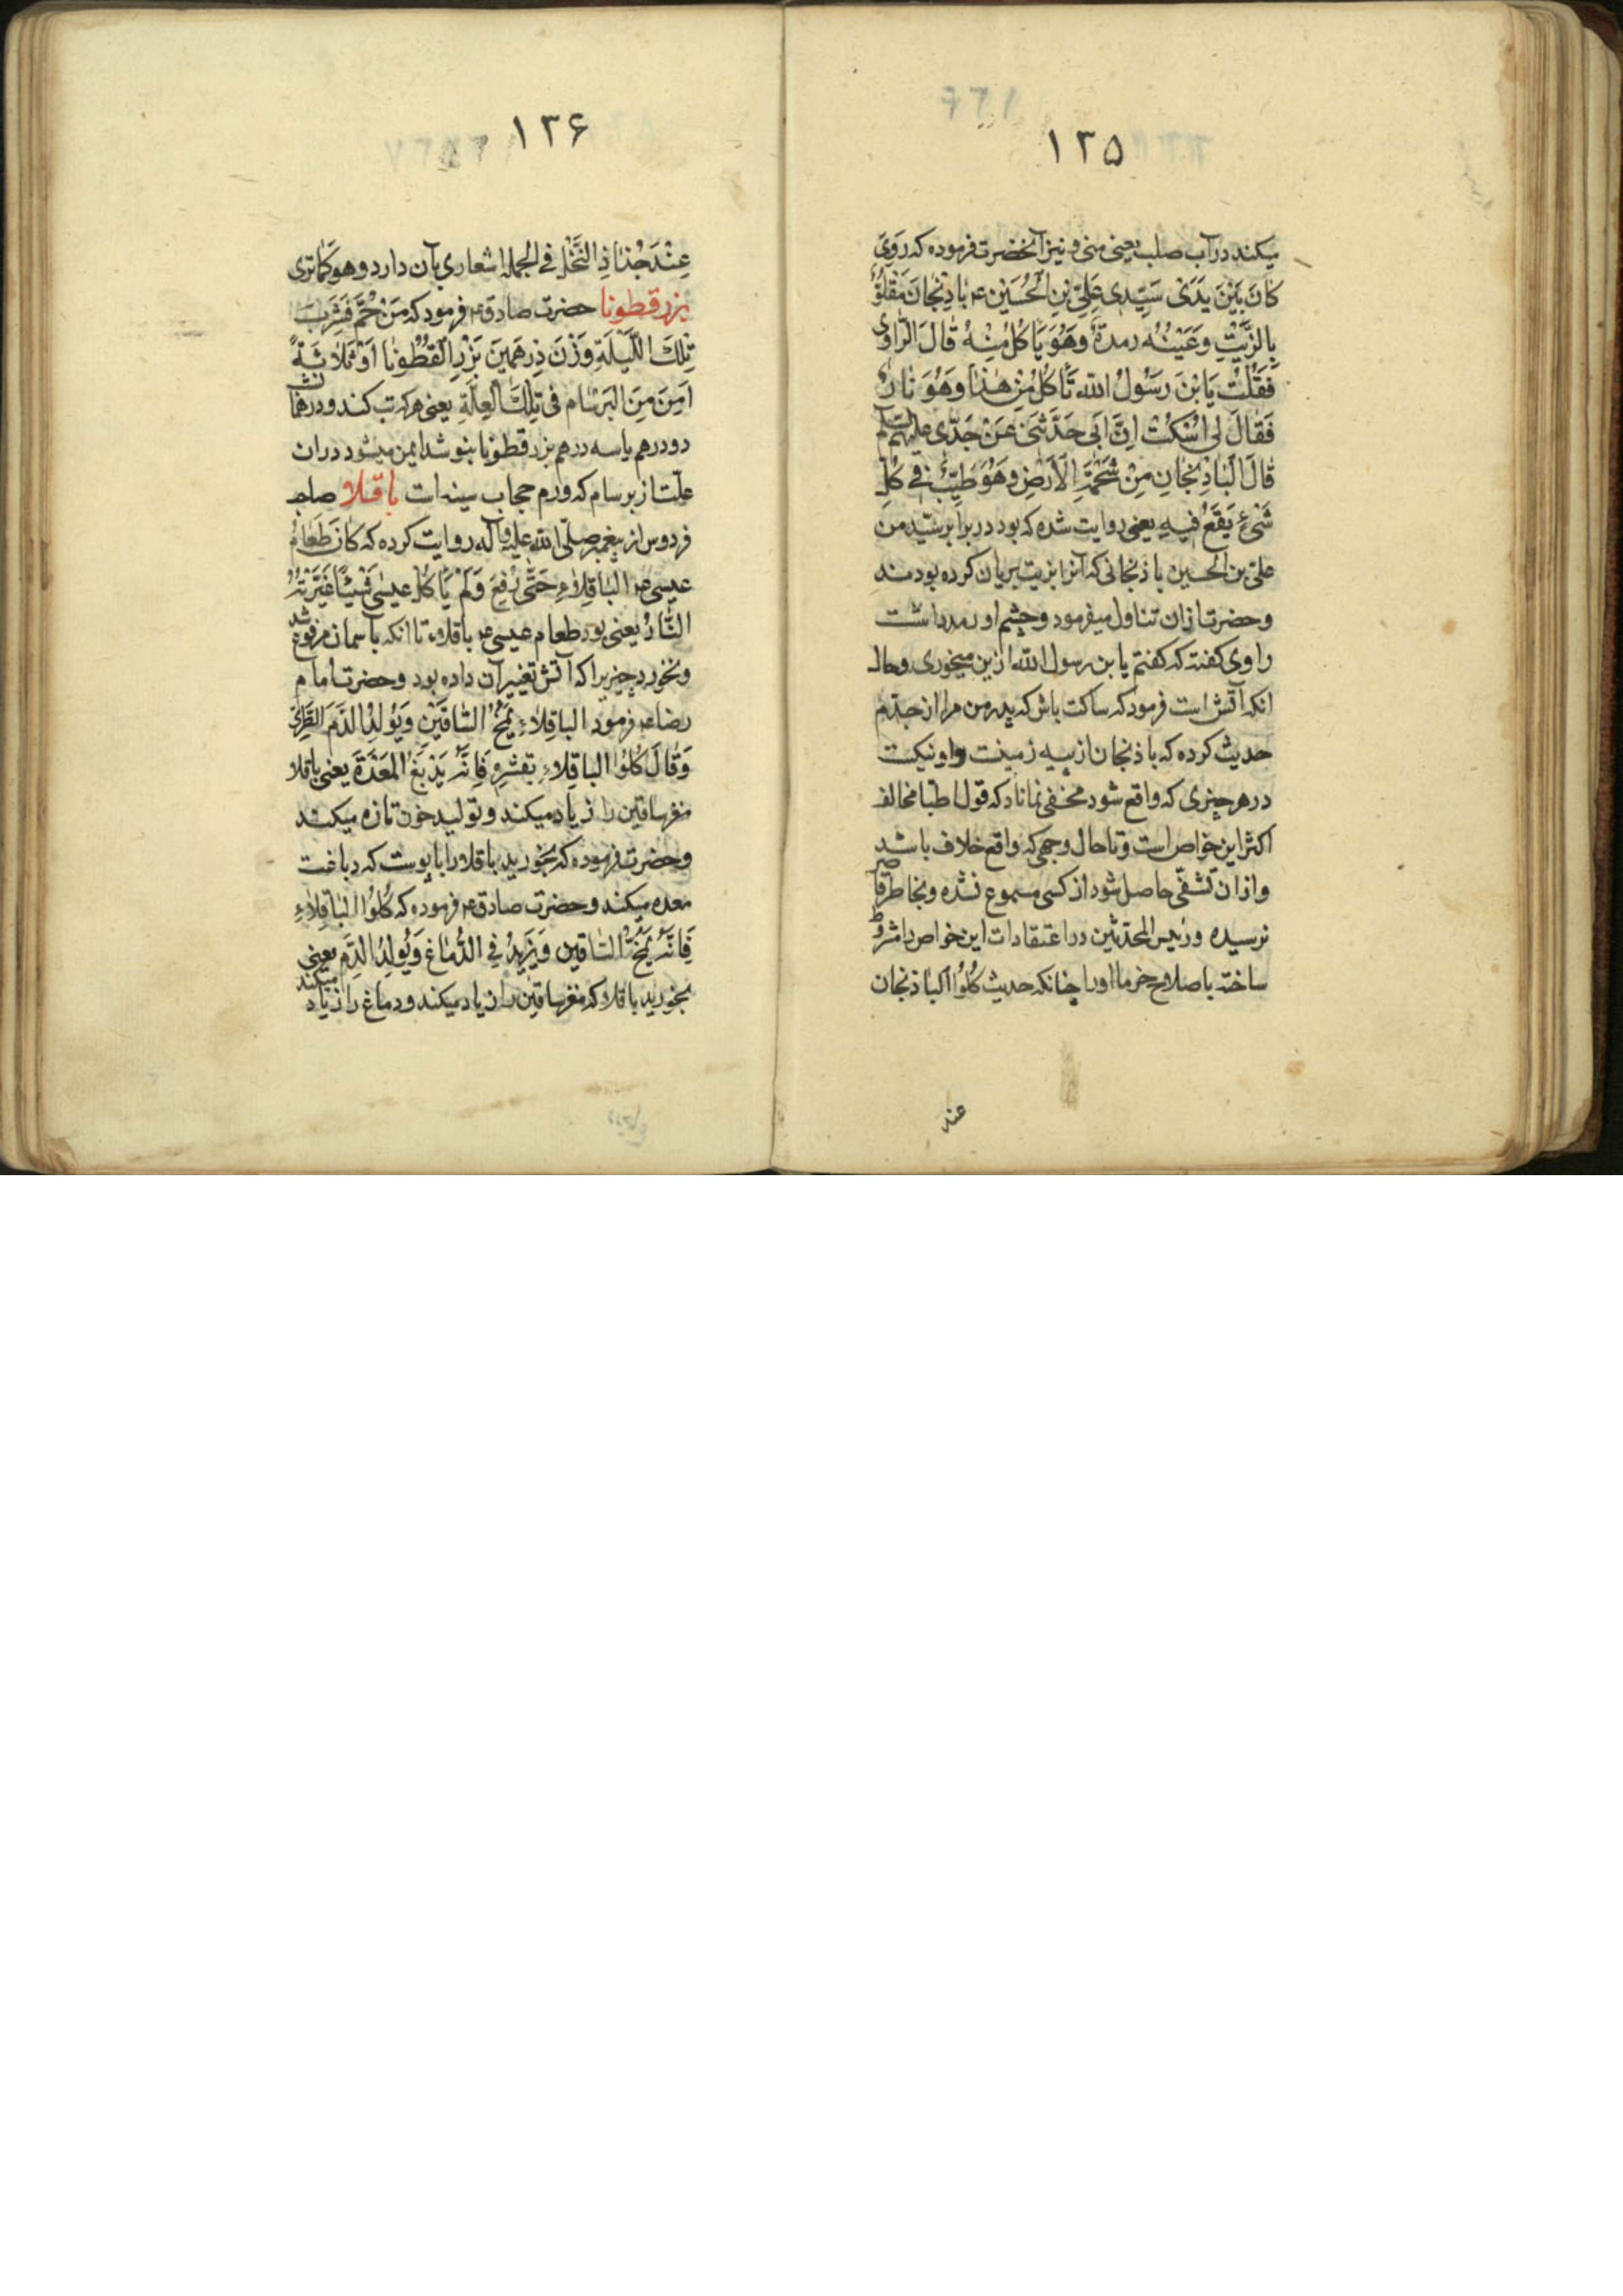 ۱۳۵
میکند در آب صلب یعنی منی و نیز آنحضرت فرموده که رَوی
کانَ بَیْنَ یَدَیْ سَیّدِی عَلِیّ بْنِ الْحُسَیْنِ ع باذِنْجانٌ مَقْلُوٌّ
بِالزَّیْتِ وَعَیْنُهُ رمدةٌ وَهُوَ یَاکُلُ مِنْهُ قالَ الرّاوی
فَقُلْتُ یَابْنَ رَسُولِ الله تَأکُلُ مِنْ هٰذا وَهُوَ نارٌ
فَقالَ لِی اسْکُتْ اِنَّ اَبی حَدَّثَنی عَنْ جَدّی علیهم السلم
قالَ الْباذِنْجانِ مِنْ شَحْمَةِ الْاَرْضِ وَهُوَ طَیِّبٌ فی کُلِّ
شَیْءٍ یَقَعُ فیهِ یعنی روایت شده که بود در برابر سیّد من
علیّ بن الحسین باذنجانی که آنرا بزیت بریان کرده بودند
و حضرت ازان تناول میفرمود و چشم او رمد داشت
راوی گفته که گفتم یابن رسول الله ازین میخوری و حال
انکه آتش است فرمود که ساکت باش که پدر من مرا از جدّم
حدیث کرده که باذنجان از پیه زمینست و او نیکست
در هر چیزی که واقع شود مخفی نماناد که قول اطبا مخالف
اکثر این خواص است و تا حال وجهی که واقع خلاف باشد
و ازان تشفّی حاصل شود از کسی مسموع نشده و بخاطر قاصر
نرسیده و رئیس المحدّثین در اعتقادات این خواص را مشروط
ساخته باصلاح خرما او را چنانکه حدیث کُلُوا الْباذنجان
عند
۱۳۶
عِنْدَ جُذاذِ النَّخْلِ فی الجمله اشعاری بآن دارد و هو کَما تری
بزر قطونا حضرت صادق ع فرمود که مَنْ حُمَّ فَشَرِبَ
تِلْکَ اللَّیْلَةِ وَزْنَ دِرْهَمَیْنِ بَزْرِ الْقُطُونا اَوْ ثَلاثَةً
اَمِنَ مِنَ الْبَرْسام فی تِلْکَ الْعِلَّةِ یعنی هر که تب کند و در همانشب
دو درهم یا سه درهم بزر قطونا بنوشد ایمن میشود دران
علّت از برسام که ورم حجاب سینه است باقلا صاحب
فردوس از پیغمبر صلّی الله علیه و آله روایت کرده که کانَ طَعامُ
عیسی ع الباقِلاءِ حَتّی رُفِعَ وَلَمْ یَأکُل عیسی شَیْئاً غَیَّرَتْهُ
النّارُ یعنی بود طعام عیسی ع باقلا تا انکه بآسمان مرفوع شد
و نخورد چیزیرا که آتش تغییر آن داده بود و حضرت امام
رضا ع فرمود الباقِلاءِ یُمَخُّ السّاقَیْنِ وَیُوَلِدُ الدَّمَ الطَّرِیَّ
وَقالَ کُلُوا الباقِلاءِ بِقِشْرِهِ فَاِنَّهُ یَدْبَغُ المَعِدَةَ یعنی باقلا
مغز ساقین را زیاد میکند و تولید خون تازه میکند
و حضرت فرموده که بخورید باقلا را با پوست که دباغت
معده میکند و حضرت صادق ع فرموده که کُلُوُا الْباقِلاءِ
فَاِنَّهُ یُمَخُّ السّاقین وَیَزیدُ فی الدُّماغ وَیُوَلِدُ الدَّم یعنی
بخورید باقلا که مغز ساقین را زیاد میکند و دماغ را زیاد میکند